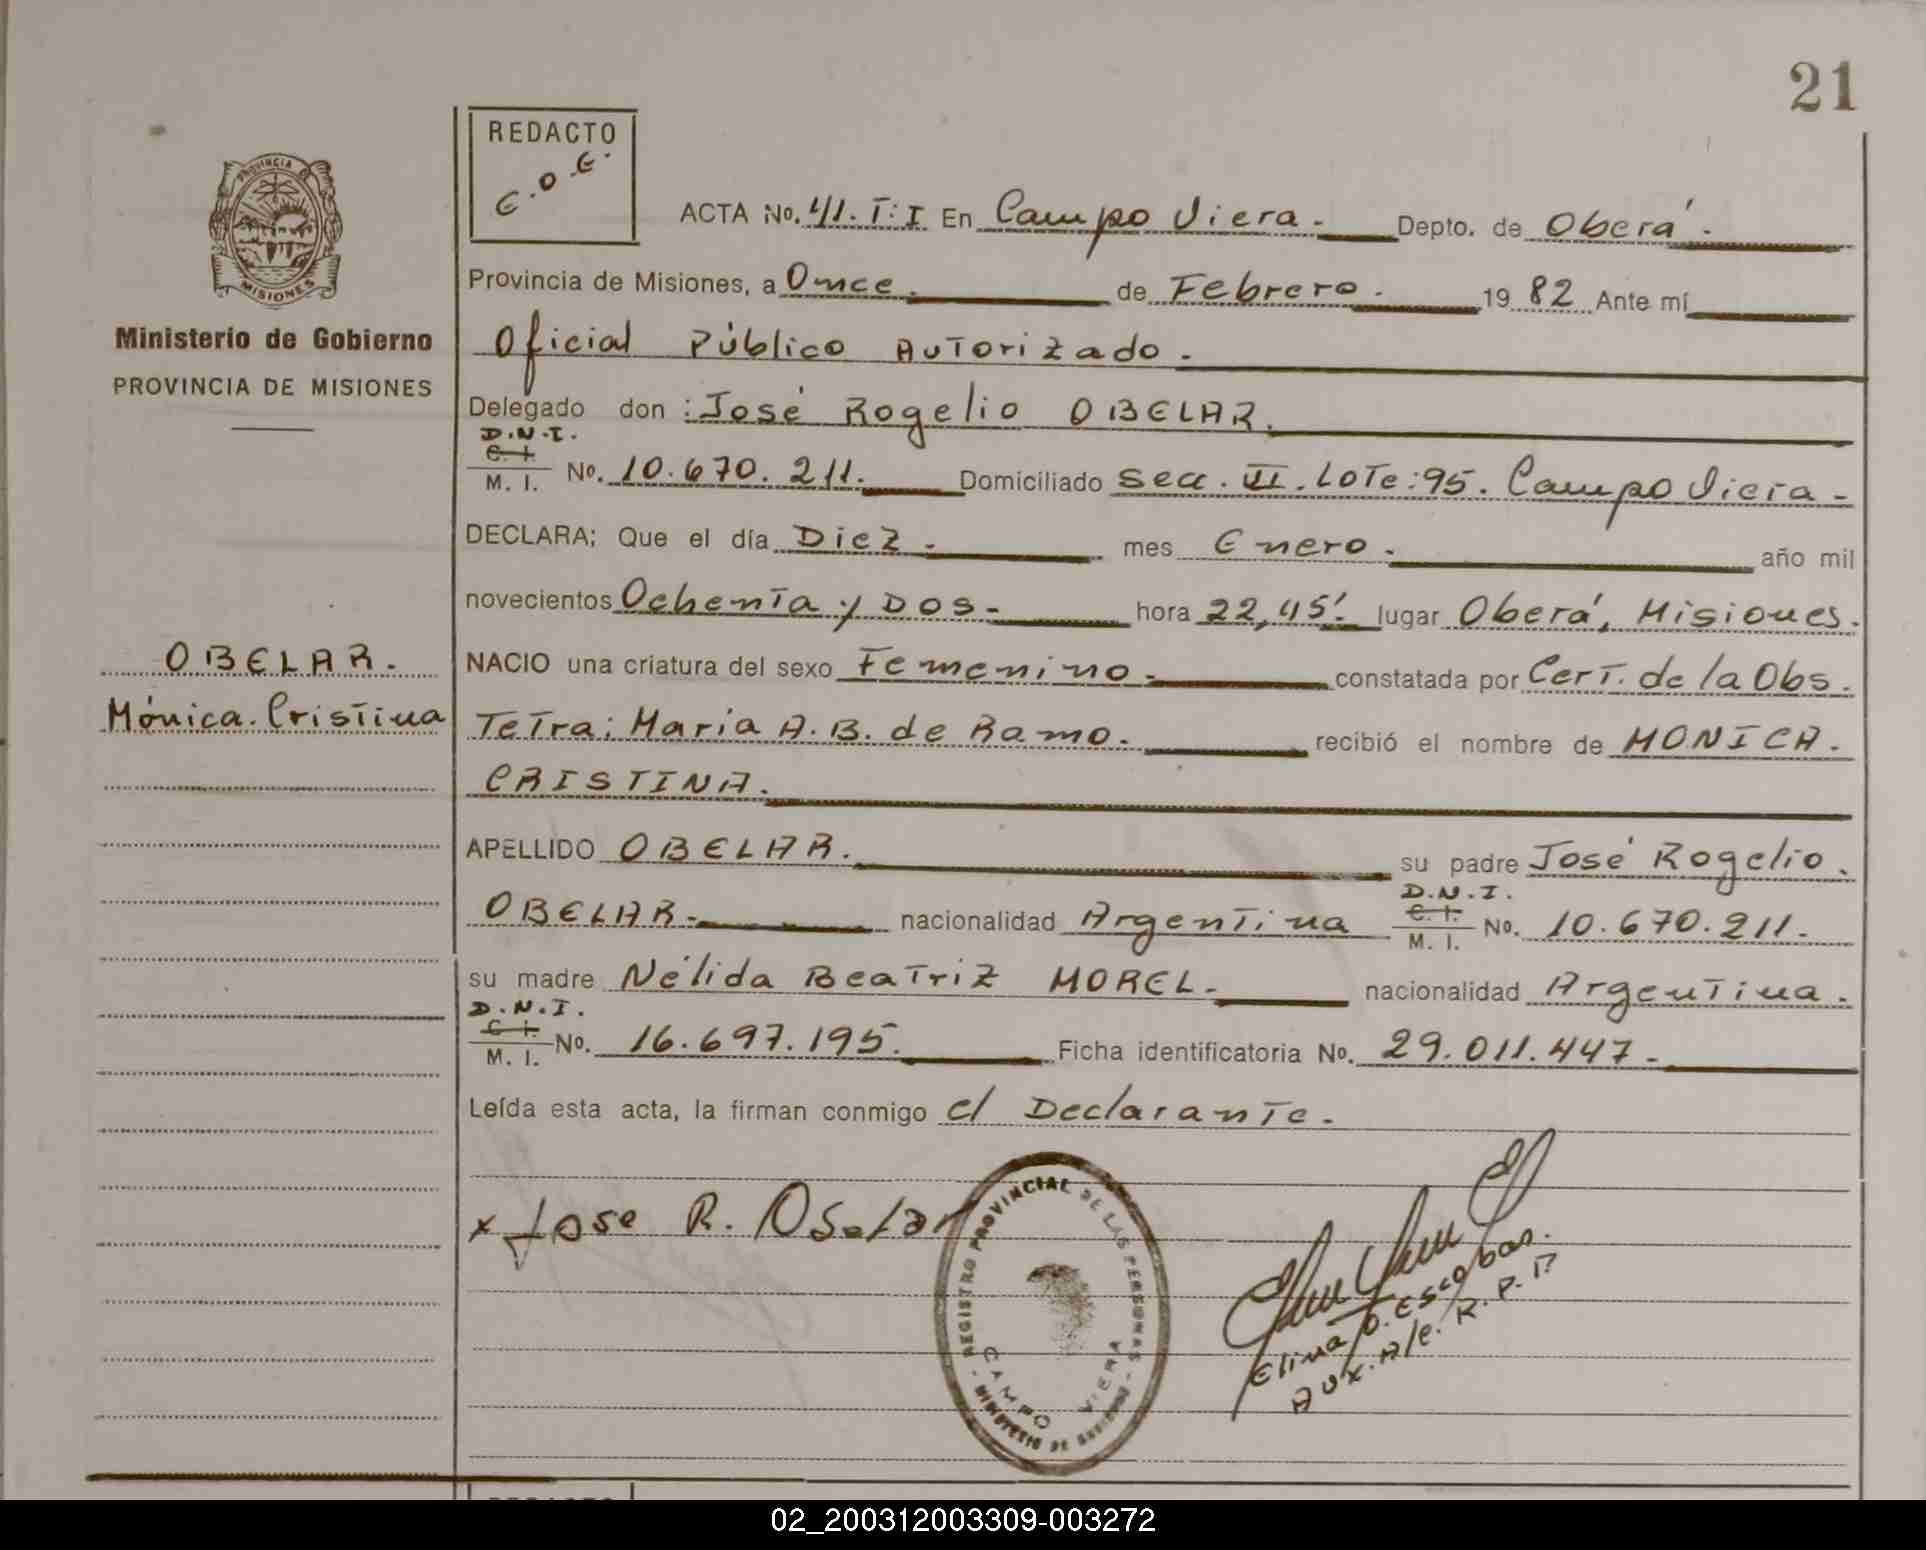 21
REDACTO
E.O.E.
ACTA No. 41. T: I En Campo Viera.- Depto. de Oberá.
PROVINCIA
MISIONES
Ministerio de Gobierno
PROVINCIA DE MISIONES
Provincia de Misiones, a Once. de Febrero. 19 82 Ante mí
Oficial Público Autorizado.
Delegado don : José Rogelio OBELAR.
D.N.I.
C. I.
M. I. No. 10.670.211. Domiciliado Secc. II. Lote: 95. Campo Viera-
DECLARA; Que el día Diez.- mes Enero.- año mil
novecientos Ochenta y Dos- hora 22,45'. lugar Oberá, Misiones.
OBELAR.
Mónica. Cristina
NACIO una criatura del sexo Femenino.- constatada por Cert. de la Obs.
Tetra; Maria A. B. de Ramo.- recibió el nombre de MONICA.
CRISTINA.
APELLIDO OBELAR. su padre José Rogelio.
OBELAR.- nacionalidad Argentina D.N.I. C. I. M. I. No. 10.670.211.
su madre Nélida Beatriz MOREL.- nacionalidad Argentina.
D.N.I.
C. I.
M. I. No. 16.697.195. Ficha identificatoria No. 29.011.447-
Leída esta acta, la firman conmigo el Declarante.-
x Jose R. Obelar
REGISTRO PROVINCIAL DE LAS PERSONAS
CAMPO VIERA
- MINISTERIO DE GOBIERNO -
Elina O. Escobar.
Aux. A/c. R. P. P
02_200312003309-003272